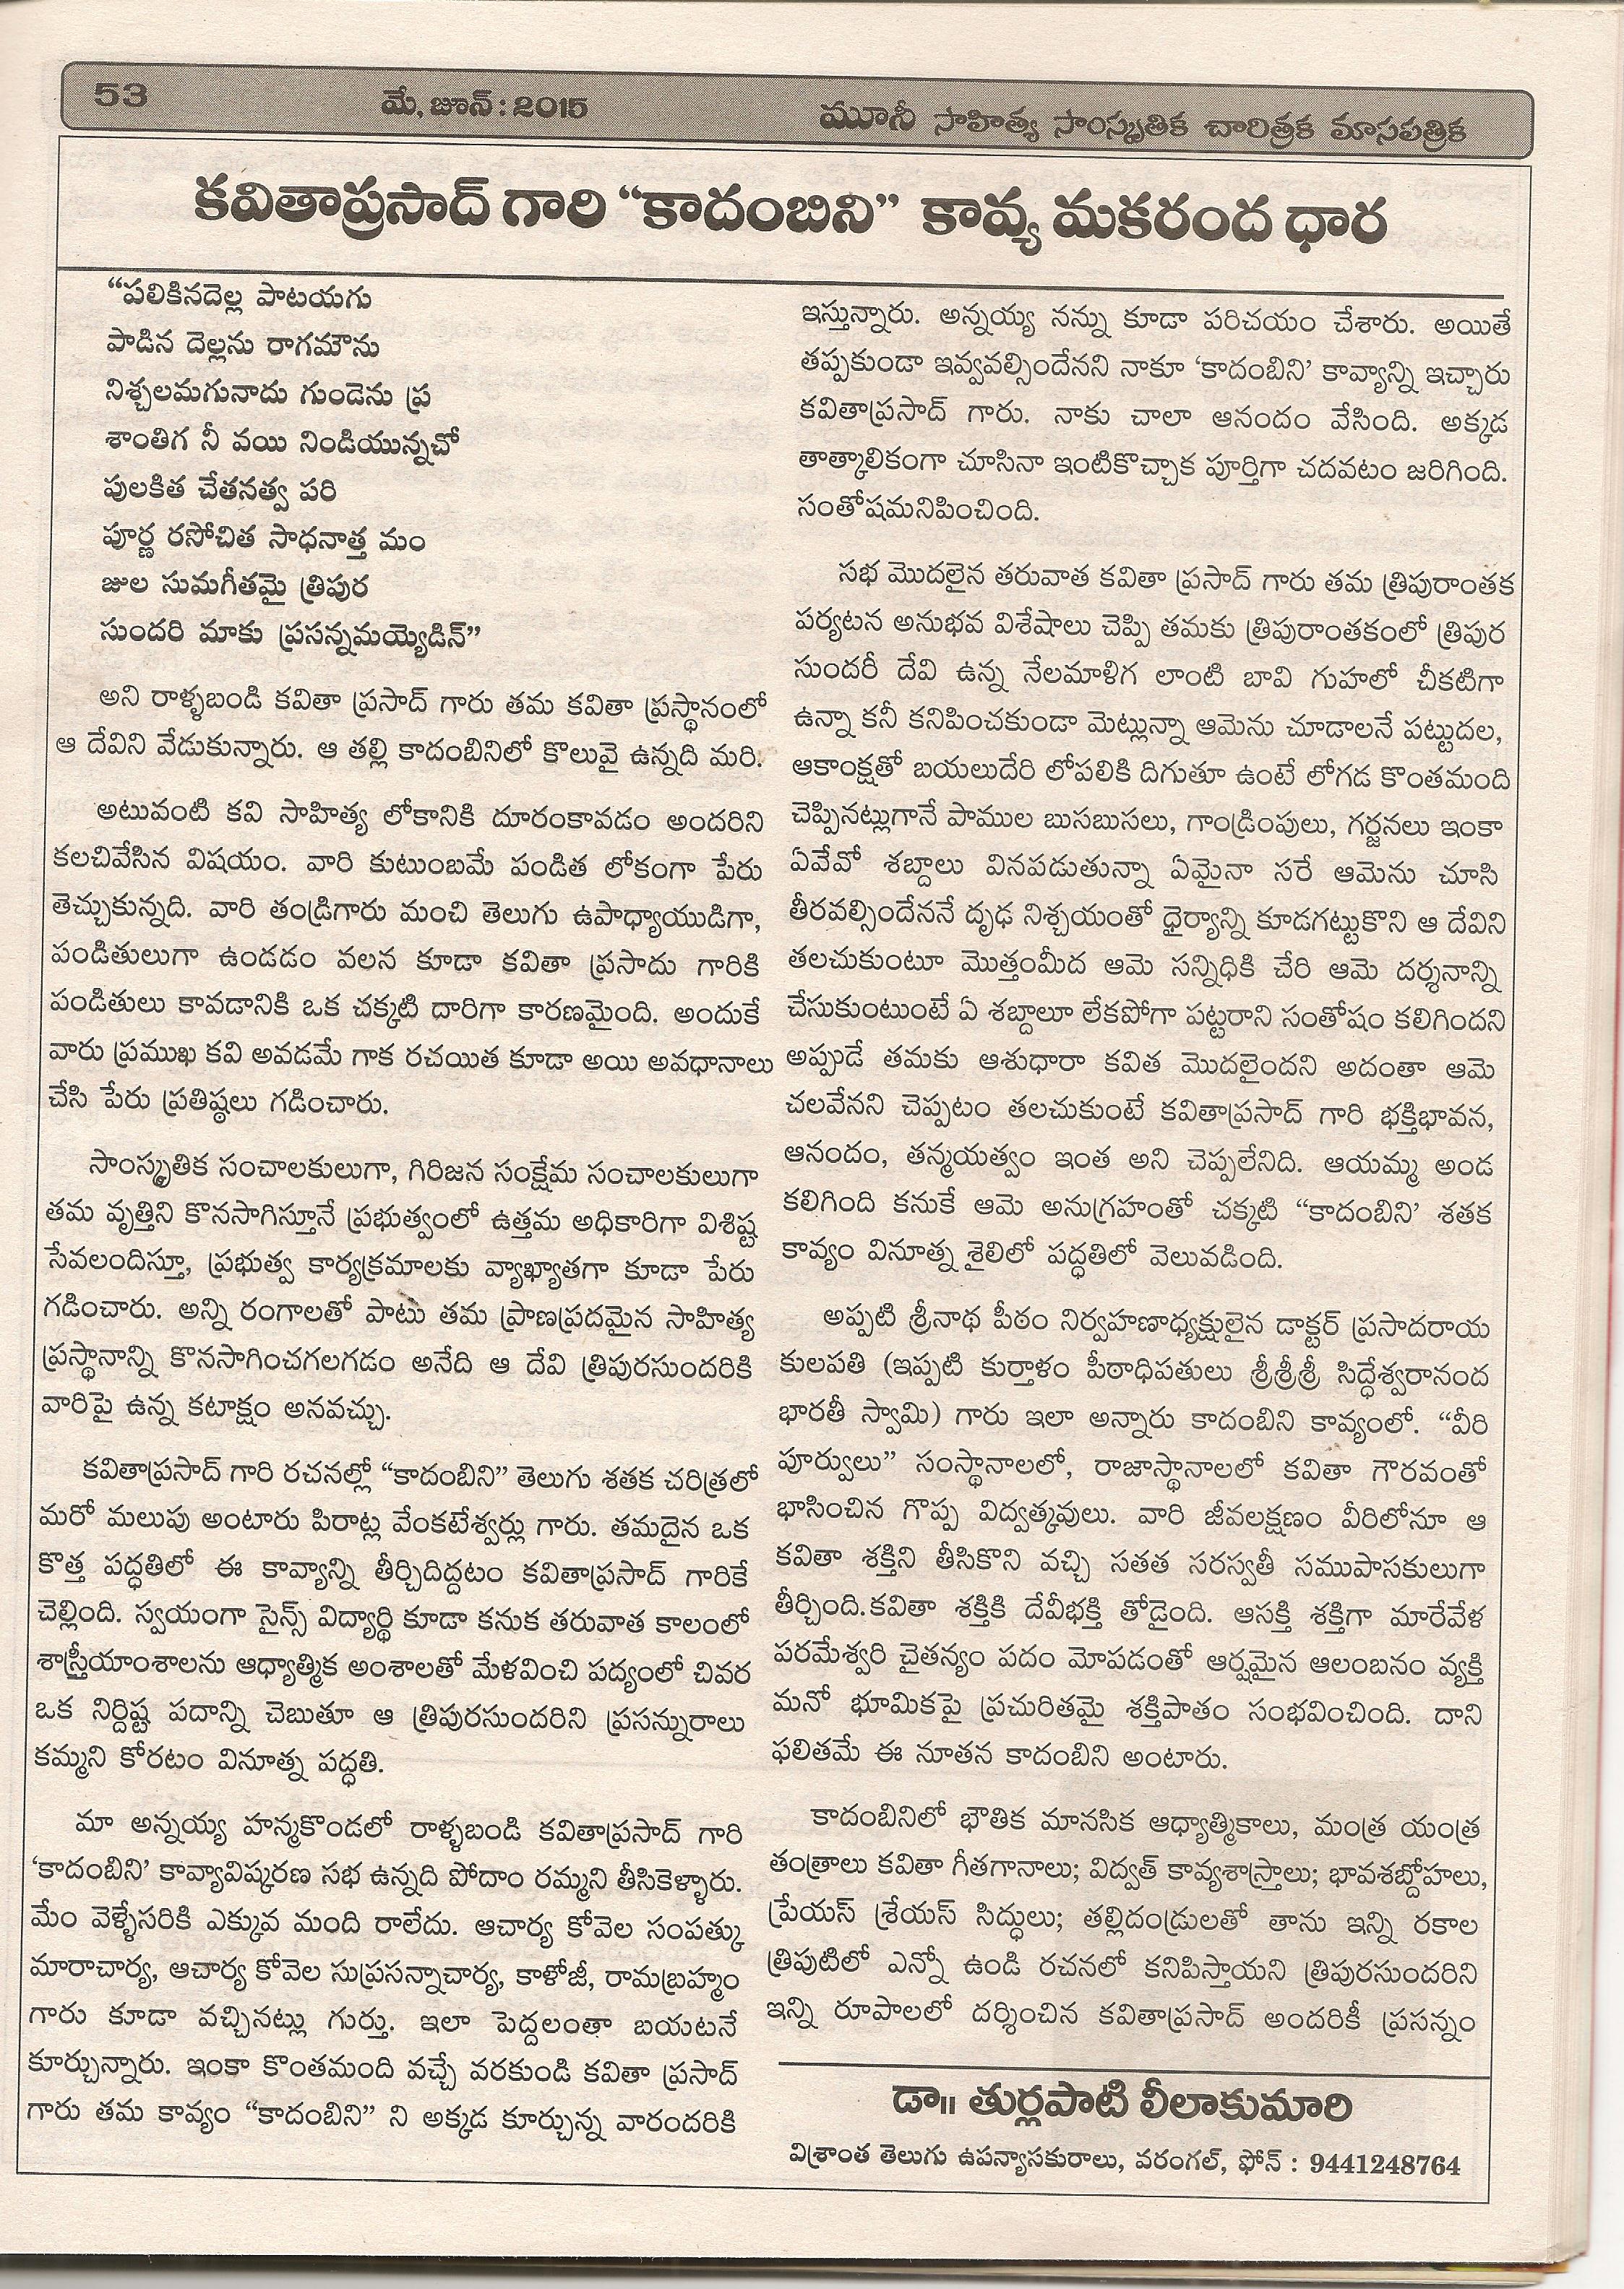 53
మే, జూన్ : 2015
మూసీ సాహిత్య సాంస్కృతిక చారిత్రక మాసపత్రిక
కవితాప్రసాద్ గారి “కాదంబిని” కావ్య మకరంద ధార
“పలికినదెల్ల పాటయగు
పాడిన దెల్లను రాగమౌను
నిశ్చలమగునాదు గుండెను ప్ర
శాంతిగ నీ వయి నిండియున్నచో
పులకిత చేతనత్వ పరి
పూర్ణ రసోచిత సాధనాత్త మం
జుల సుమగీతమై త్రిపుర
సుందరి మాకు ప్రసన్నమయ్యెడిన్”
అని రాళ్ళబండి కవితా ప్రసాద్ గారు తమ కవితా ప్రస్థానంలో
ఆ దేవిని వేడుకున్నారు. ఆ తల్లి కాదంబినిలో కొలువై ఉన్నది మరి.
అటువంటి కవి సాహిత్య లోకానికి దూరంకావడం అందరిని
కలచివేసిన విషయం. వారి కుటుంబమే పండిత లోకంగా పేరు
తెచ్చుకున్నది. వారి తండ్రిగారు మంచి తెలుగు ఉపాధ్యాయుడిగా,
పండితులుగా ఉండడం వలన కూడా కవితా ప్రసాదు గారికి
పండితులు కావడానికి ఒక చక్కటి దారిగా కారణమైంది. అందుకే
వారు ప్రముఖ కవి అవడమే గాక రచయిత కూడా అయి అవధానాలు
చేసి పేరు ప్రతిష్ఠలు గడించారు.
సాంస్కృతిక సంచాలకులుగా, గిరిజన సంక్షేమ సంచాలకులుగా
తమ వృత్తిని కొనసాగిస్తూనే ప్రభుత్వంలో ఉత్తమ అధికారిగా విశిష్ట
సేవలందిస్తూ, ప్రభుత్వ కార్యక్రమాలకు వ్యాఖ్యాతగా కూడా పేరు
గడించారు. అన్ని రంగాలతో పాటు తమ ప్రాణప్రదమైన సాహిత్య
ప్రస్థానాన్ని కొనసాగించగలగడం అనేది ఆ దేవి త్రిపురసుందరికి
వారిపై ఉన్న కటాక్షం అనవచ్చు.
కవితాప్రసాద్ గారి రచనల్లో “కాదంబిని” తెలుగు శతక చరిత్రలో
మరో మలుపు అంటారు పిరాట్ల వేంకటేశ్వర్లు గారు. తమదైన ఒక
కొత్త పద్ధతిలో ఈ కావ్యాన్ని తీర్చిదిద్దటం కవితాప్రసాద్ గారికే
చెల్లింది. స్వయంగా సైన్స్ విద్యార్థి కూడా కనుక తరువాత కాలంలో
శాస్త్రీయాంశాలను ఆధ్యాత్మిక అంశాలతో మేళవించి పద్యంలో చివర
ఒక నిర్దిష్ట పదాన్ని చెబుతూ ఆ త్రిపురసుందరిని ప్రసన్నురాలు
కమ్మని కోరటం వినూత్న పద్ధతి.
మా అన్నయ్య హన్మకొండలో రాళ్ళబండి కవితాప్రసాద్ గారి
‘కాదంబిని’ కావ్యావిష్కరణ సభ ఉన్నది పోదాం రమ్మని తీసికెళ్ళారు.
మేం వెళ్ళేసరికి ఎక్కువ మంది రాలేదు. ఆచార్య కోవెల సంపత్కు
మారాచార్య, ఆచార్య కోవెల సుప్రసన్నాచార్య, కాళోజీ, రామబ్రహ్మం
గారు కూడా వచ్చినట్లు గుర్తు. ఇలా పెద్దలంతా బయటనే
కూర్చున్నారు. ఇంకా కొంతమంది వచ్చే వరకుండి కవితా ప్రసాద్
గారు తమ కావ్యం “కాదంబిని” ని అక్కడ కూర్చున్న వారందరికి
ఇస్తున్నారు. అన్నయ్య నన్ను కూడా పరిచయం చేశారు. అయితే
తప్పకుండా ఇవ్వవల్సిందేనని నాకూ ‘కాదంబిని’ కావ్యాన్ని ఇచ్చారు
కవితాప్రసాద్ గారు. నాకు చాలా ఆనందం వేసింది. అక్కడ
తాత్కాలికంగా చూసినా ఇంటికొచ్చాక పూర్తిగా చదవటం జరిగింది.
సంతోషమనిపించింది.
సభ మొదలైన తరువాత కవితా ప్రసాద్ గారు తమ త్రిపురాంతక
పర్యటన అనుభవ విశేషాలు చెప్పి తమకు త్రిపురాంతకంలో త్రిపుర
సుందరీ దేవి ఉన్న నేలమాళిగ లాంటి బావి గుహలో చీకటిగా
ఉన్నా కనీ కనిపించకుండా మెట్లున్నా ఆమెను చూడాలనే పట్టుదల,
ఆకాంక్షతో బయలుదేరి లోపలికి దిగుతూ ఉంటే లోగడ కొంతమంది
చెప్పినట్లుగానే పాముల బుసబుసలు, గాండ్రింపులు, గర్జనలు ఇంకా
ఏవేవో శబ్దాలు వినపడుతున్నా ఏమైనా సరే ఆమెను చూసి
తీరవల్సిందేననే దృఢ నిశ్చయంతో ధైర్యాన్ని కూడగట్టుకొని ఆ దేవిని
తలచుకుంటూ మొత్తంమీద ఆమె సన్నిధికి చేరి ఆమె దర్శనాన్ని
చేసుకుంటుంటే ఏ శబ్దాలూ లేకపోగా పట్టరాని సంతోషం కలిగిందని
అప్పుడే తమకు ఆశుధారా కవిత మొదలైందని అదంతా ఆమె
చలవేనని చెప్పటం తలచుకుంటే కవితాప్రసాద్ గారి భక్తిభావన,
ఆనందం, తన్మయత్వం ఇంత అని చెప్పలేనిది. ఆయమ్మ అండ
కలిగింది కనుకే ఆమె అనుగ్రహంతో చక్కటి “కాదంబిని’ శతక
కావ్యం వినూత్న శైలిలో పద్ధతిలో వెలువడింది.
అప్పటి శ్రీనాథ పీఠం నిర్వహణాధ్యక్షులైన డాక్టర్ ప్రసాదరాయ
కులపతి (ఇప్పటి కుర్తాళం పీఠాధిపతులు శ్రీశ్రీశ్రీ సిద్ధేశ్వరానంద
భారతీ స్వామి) గారు ఇలా అన్నారు కాదంబిని కావ్యంలో. “వీరి
పూర్వులు” సంస్థానాలలో, రాజాస్థానాలలో కవితా గౌరవంతో
భాసించిన గొప్ప విద్వత్కవులు. వారి జీవలక్షణం వీరిలోనూ ఆ
కవితా శక్తిని తీసికొని వచ్చి సతత సరస్వతీ సముపాసకులుగా
తీర్చింది.కవితా శక్తికి దేవీభక్తి తోడైంది. ఆసక్తి శక్తిగా మారేవేళ
పరమేశ్వరి చైతన్యం పదం మోపడంతో ఆర్షమైన ఆలంబనం వ్యక్తి
మనో భూమికపై ప్రచురితమై శక్తిపాతం సంభవించింది. దాని
ఫలితమే ఈ నూతన కాదంబిని అంటారు.
కాదంబినిలో భౌతిక మానసిక ఆధ్యాత్మికాలు, మంత్ర యంత్ర
తంత్రాలు కవితా గీతగానాలు; విద్వత్ కావ్యశాస్త్రాలు; భావశబ్దోహలు,
ప్రేయస్ శ్రేయస్ సిద్ధులు; తల్లిదండ్రులతో తాను ఇన్ని రకాల
త్రిపుటిలో ఎన్నో ఉండి రచనలో కనిపిస్తాయని త్రిపురసుందరిని
ఇన్ని రూపాలలో దర్శించిన కవితాప్రసాద్ అందరికీ ప్రసన్నం
డా॥ తుర్లపాటి లీలాకుమారి
విశ్రాంత తెలుగు ఉపన్యాసకురాలు, వరంగల్, ఫోన్ : 9441248764